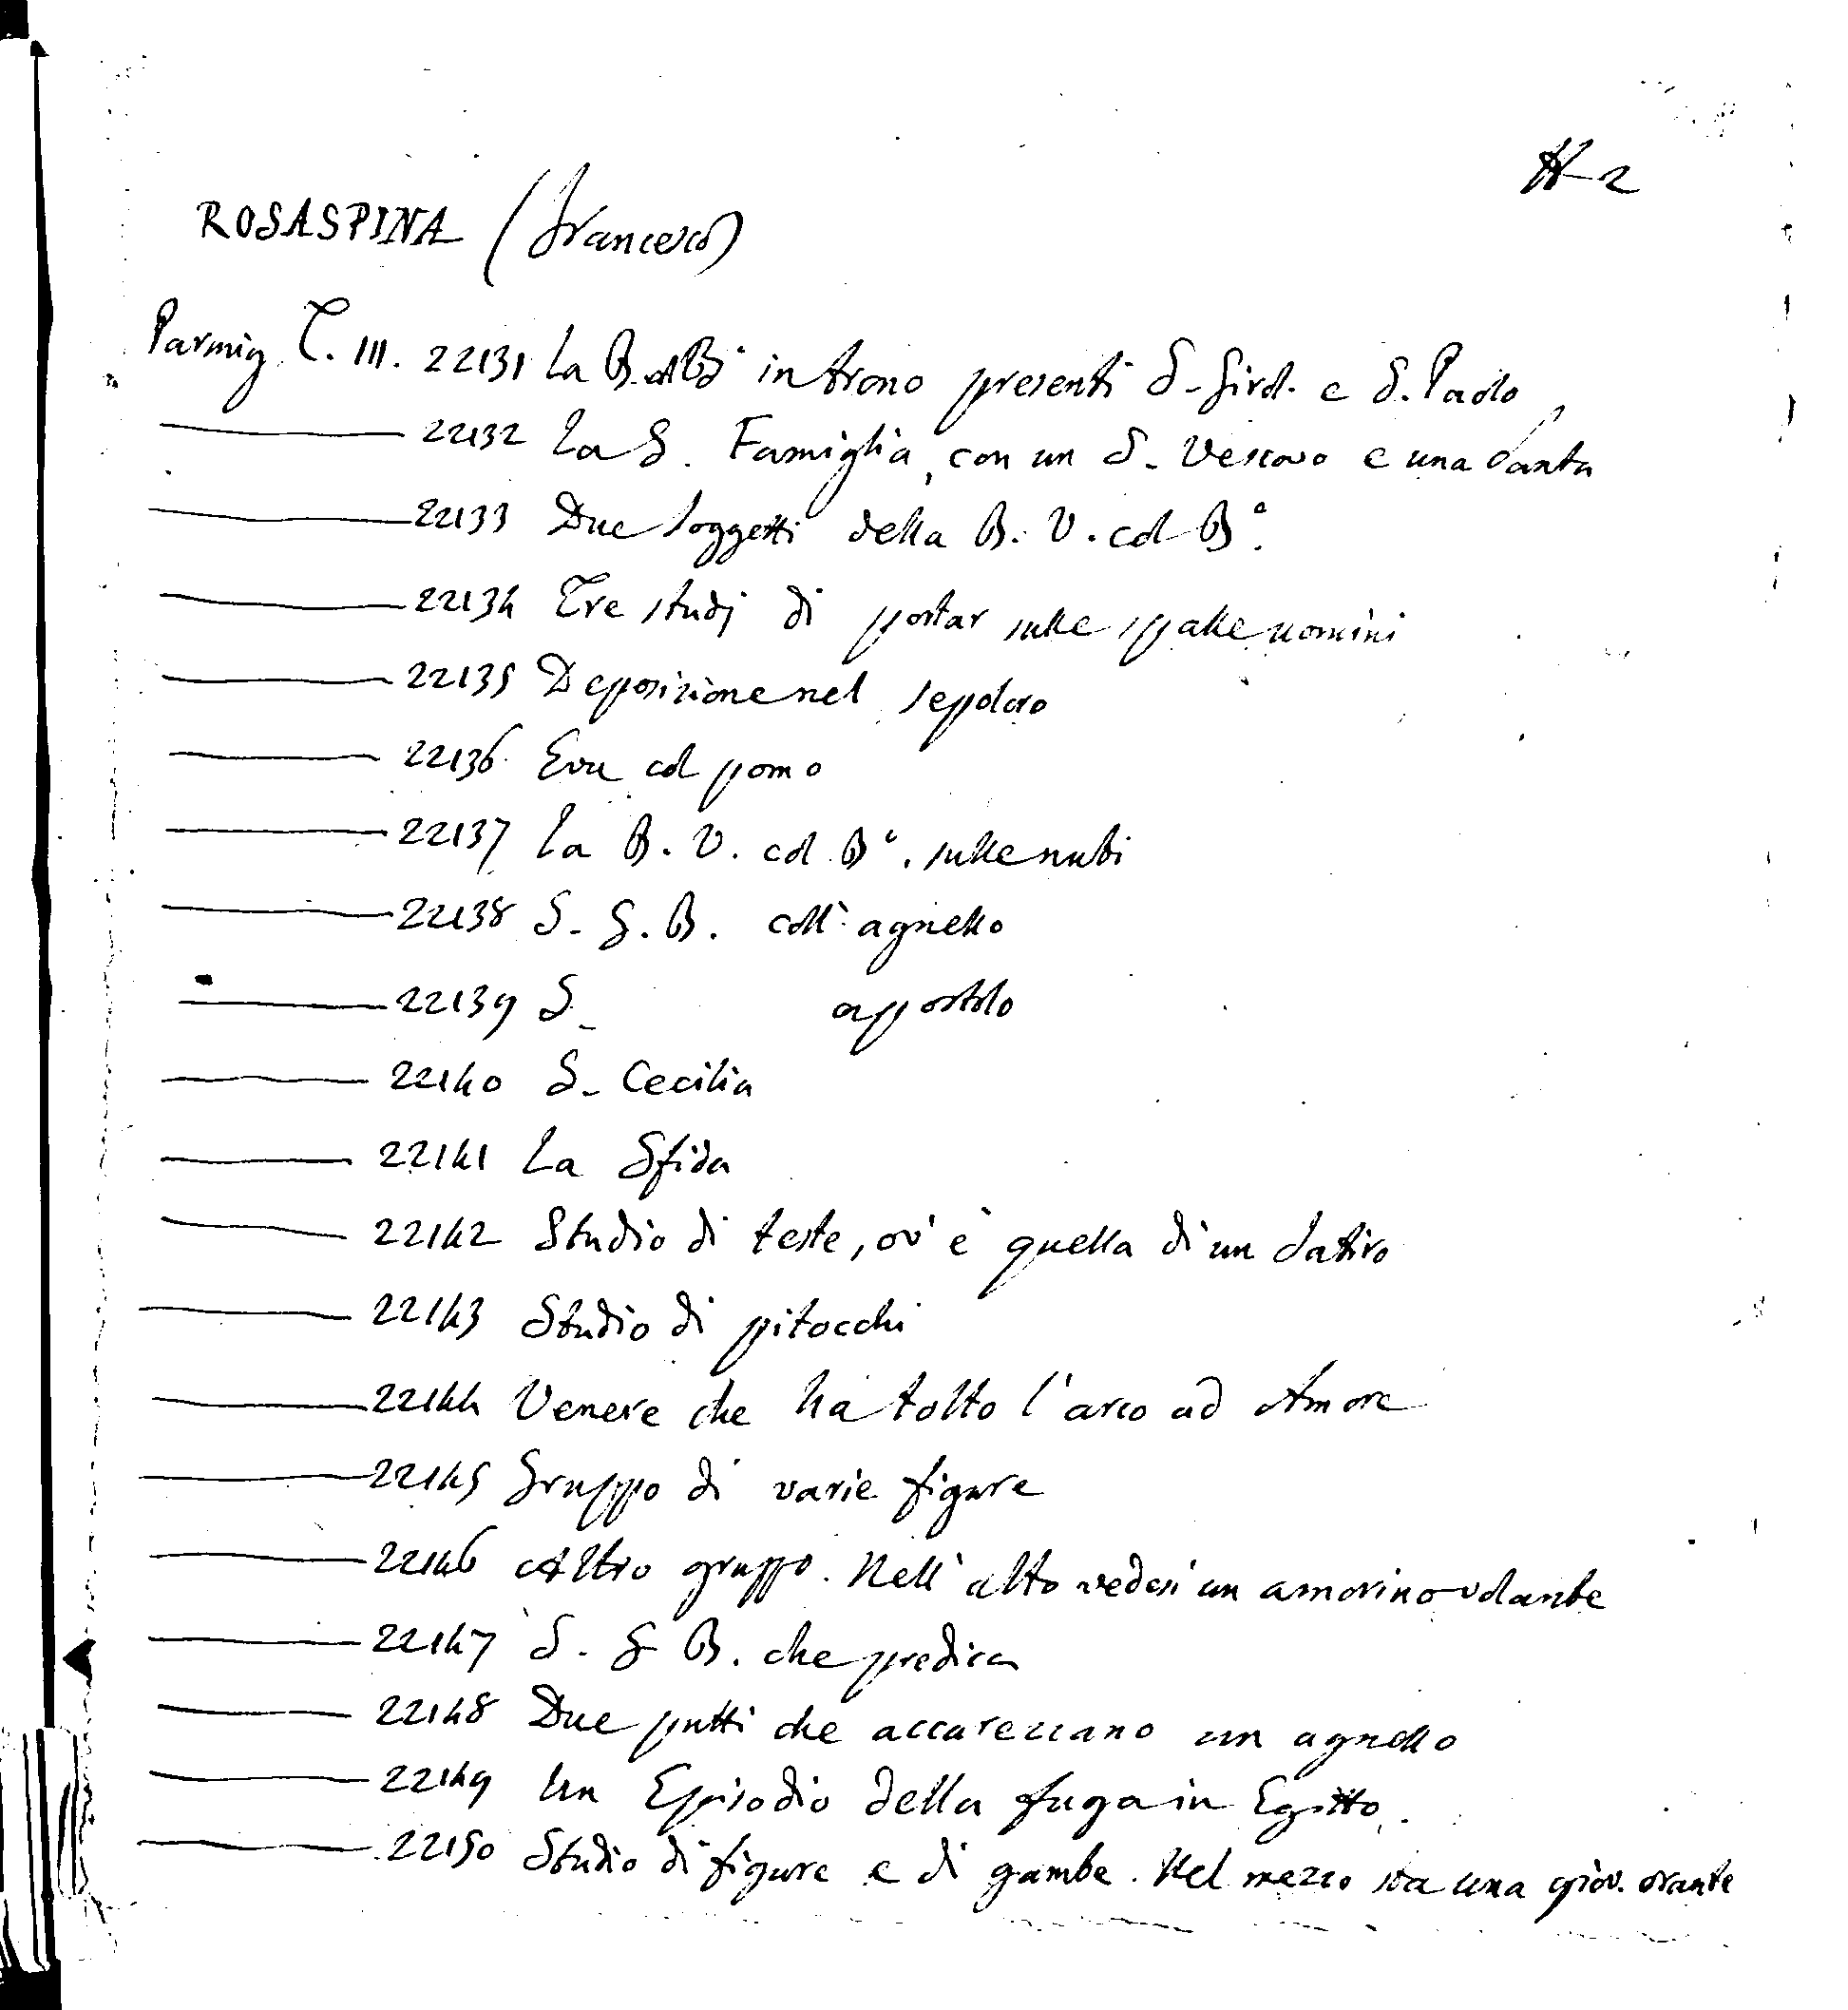 H-2
ROSASPINA (Francesco)
Parmig. T. III. 22131 La B. col Bº in trono presenti S. Girol. e S. Paolo
22132 La S. Famiglia, con un S. Vescovo e una Santa
22133 Due soggetti della B. V. col Bº.
22134 Tre studj di portar sulle spalle uomini
22135 Deposizione nel sepolcro
22136 Eva col pomo
22137 La B. V. col Bº. sulle nubi
22138 S. G. B. coll' agnello
22139 S. apostolo
22140 S. Cecilia
22141 La Sfida
22142 Studio di teste, ov' è quella di un Satiro
22143 Studio di pitocchi
22144 Venere che ha tolto l'arco ad Amore
22145 Gruppo di varie figure
22146 Altro gruppo. Nell' alto vedesi un amorino volante
22147 S. G B. che predica
22148 Due putti che accarezzano un agnello
22149 Un Episodio della fuga in Egitto.
22150 Studio di figure e di gambe. Nel mezzo sta una giov. orante